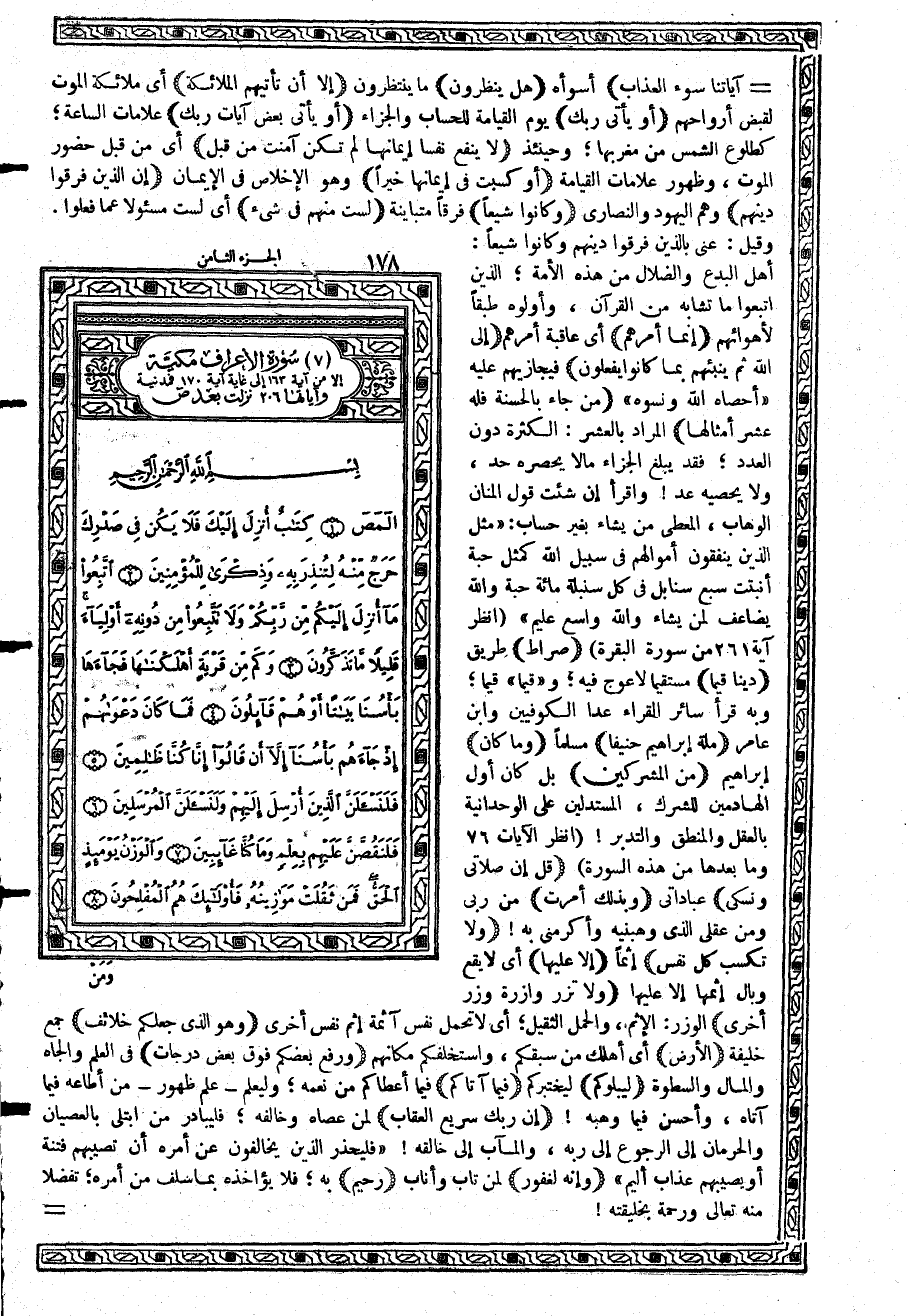 = آياتنا سوء العذاب) أسوأه (هل ينظرون) ما ينتظرون (إلا أن تأتيهم الملائكة) أى ملائكة الموت
لقبض أرواحهم (أو يأتى ربك) يوم القيامة للحساب والجزاء (أو يأتى بعض آيات ربك) علامات الساعة؛
كطلوع الشمس من مغربها؛ وحينئذ (لا ينفع نفسا إيمانها لم تكن آمنت من قبل) أى من قبل حضور
الموت، وظهور علامات القيامة (أو كسبت فى إيمانها خيراً) وهو الإخلاص فى الإيمان (إن الذين فرقوا
دينهم) وهم اليهود والنصارى (وكانوا شيعاً) فرقاً متباينة (لست منهم فى شىء) أى لست مسئولا عما فعلوا.
وقيل: عنى بالذين فرقوا دينهم وكانوا شيعاً:
أهل البدع والضلال من هذه الأمة؛ الذين
اتبعوا ما تشابه من القرآن، وأولوه طبقاً
لأهوائهم (إنما أمرهم) أى عاقبة أمرهم (إلى
الله ثم ينبئهم بما كانوا يفعلون) فيجازيهم عليه
«أحصاه الله ونسوه» (من جاء بالحسنة فله
عشر أمثالها) المراد بالعشر: الكثرة دون
العدد؛ فقد يبلغ الجزاء مالا يحصره حد،
ولا يحصيه عد! واقرأ إن شئت قول المنان
الوهاب، المعطى من يشاء بغير حساب: «مثل
الذين ينفقون أموالهم فى سبيل الله كمثل حبة
أنبتت سبع سنابل فى كل سنبلة مائة حبة والله
يضاعف لمن يشاء والله واسع عليم» (انظر
آية ٢٦١ من سورة البقرة) (صراط) طريق
(دينا قيما) مستقيما لاعوج فيه؛ و«قيما» قيما؛
وبه قرأ سائر القراء عدا الكوفيين وابن
عامر (ملة إبراهيم حنيفا) مسلماً (وما كان)
إبراهيم (من المشركين) بل كان أول
الهادمين للشرك، المستدلين على الوحدانية
بالعقل والمنطق والتدبر! (انظر الآيات ٧٦
وما بعدها من هذه السورة) (قل إن صلاتى
ونسكى) عباداتى (وبذلك أمرت) من ربى
ومن عقلى الذى وهبنيه وأكرمنى به! (ولا
تكسب كل نفس) إثماً (إلا عليها) أى لايقع
وبال إثمها إلا عليها (ولا تزر وازرة وزر
١٧٨ الجزء الثامن
(٧) سورة الأعراف مكية
إلا من آية ١٦٣ إلى غاية آية ١٧٠ فمدنية
وآياتها ٢٠٦ نزلت بعد ص
بسم الله الرحمن الرحيم
الٓمٓصٓ ١ كِتَٰبٌ أُنزِلَ إِلَيْكَ فَلَا يَكُن فِى صَدْرِكَ
حَرَجٌ مِّنْهُ لِتُنذِرَ بِهِۦ وَذِكْرَىٰ لِلْمُؤْمِنِينَ ٢ ٱتَّبِعُوا۟
مَآ أُنزِلَ إِلَيْكُم مِّن رَّبِّكُمْ وَلَا تَتَّبِعُوا۟ مِن دُونِهِۦٓ أَوْلِيَآءَ
قَلِيلًا مَّا تَذَكَّرُونَ ٣ وَكَم مِّن قَرْيَةٍ أَهْلَكْنَٰهَا فَجَآءَهَا
بَأْسُنَا بَيَٰتًا أَوْ هُمْ قَآئِلُونَ ٤ فَمَا كَانَ دَعْوَىٰهُمْ
إِذْ جَآءَهُم بَأْسُنَآ إِلَّآ أَن قَالُوٓا۟ إِنَّا كُنَّا ظَٰلِمِينَ ٥
فَلَنَسْـَٔلَنَّ ٱلَّذِينَ أُرْسِلَ إِلَيْهِمْ وَلَنَسْـَٔلَنَّ ٱلْمُرْسَلِينَ ٦
فَلَنَقُصَّنَّ عَلَيْهِم بِعِلْمٍ وَمَا كُنَّا غَآئِبِينَ ٧ وَٱلْوَزْنُ يَوْمَئِذٍ
ٱلْحَقُّ فَمَن ثَقُلَتْ مَوَٰزِينُهُۥ فَأُو۟لَٰٓئِكَ هُمُ ٱلْمُفْلِحُونَ ٨
وَمَنْ
أخرى) الوزر: الإثم، والحمل الثقيل؛ أى لاتحمل نفس آثمة إثم نفس أخرى (وهو الذى جعلكم خلائف) جمع
خليفة (الأرض) أى أهلك من سبقكم، واستخلفكم مكانهم (ورفع بعضكم فوق بعض درجات) فى العلم والجاه
والمال والسطوة (ليبلوكم) ليختبركم (فيما آتاكم) فيما أعطاكم من نعمه؛ وليعلم – علم ظهور – من أطاعه فيما
آتاه، وأحسن فيما وهبه! (إن ربك سريع العقاب) لمن عصاه وخالفه؛ فليبادر من ابتلى بالعصيان
والحرمان إلى الرجوع إلى ربه، والمآب إلى خالقه! «فليحذر الذين يخالفون عن أمره أن تصيبهم فتنة
أو يصيبهم عذاب أليم» (وإنه لغفور) لمن تاب وأناب (رحيم) به؛ فلا يؤاخذه بما سلف من أمره؛ تفضلا
منه تعالى ورحمة بخليقته! =